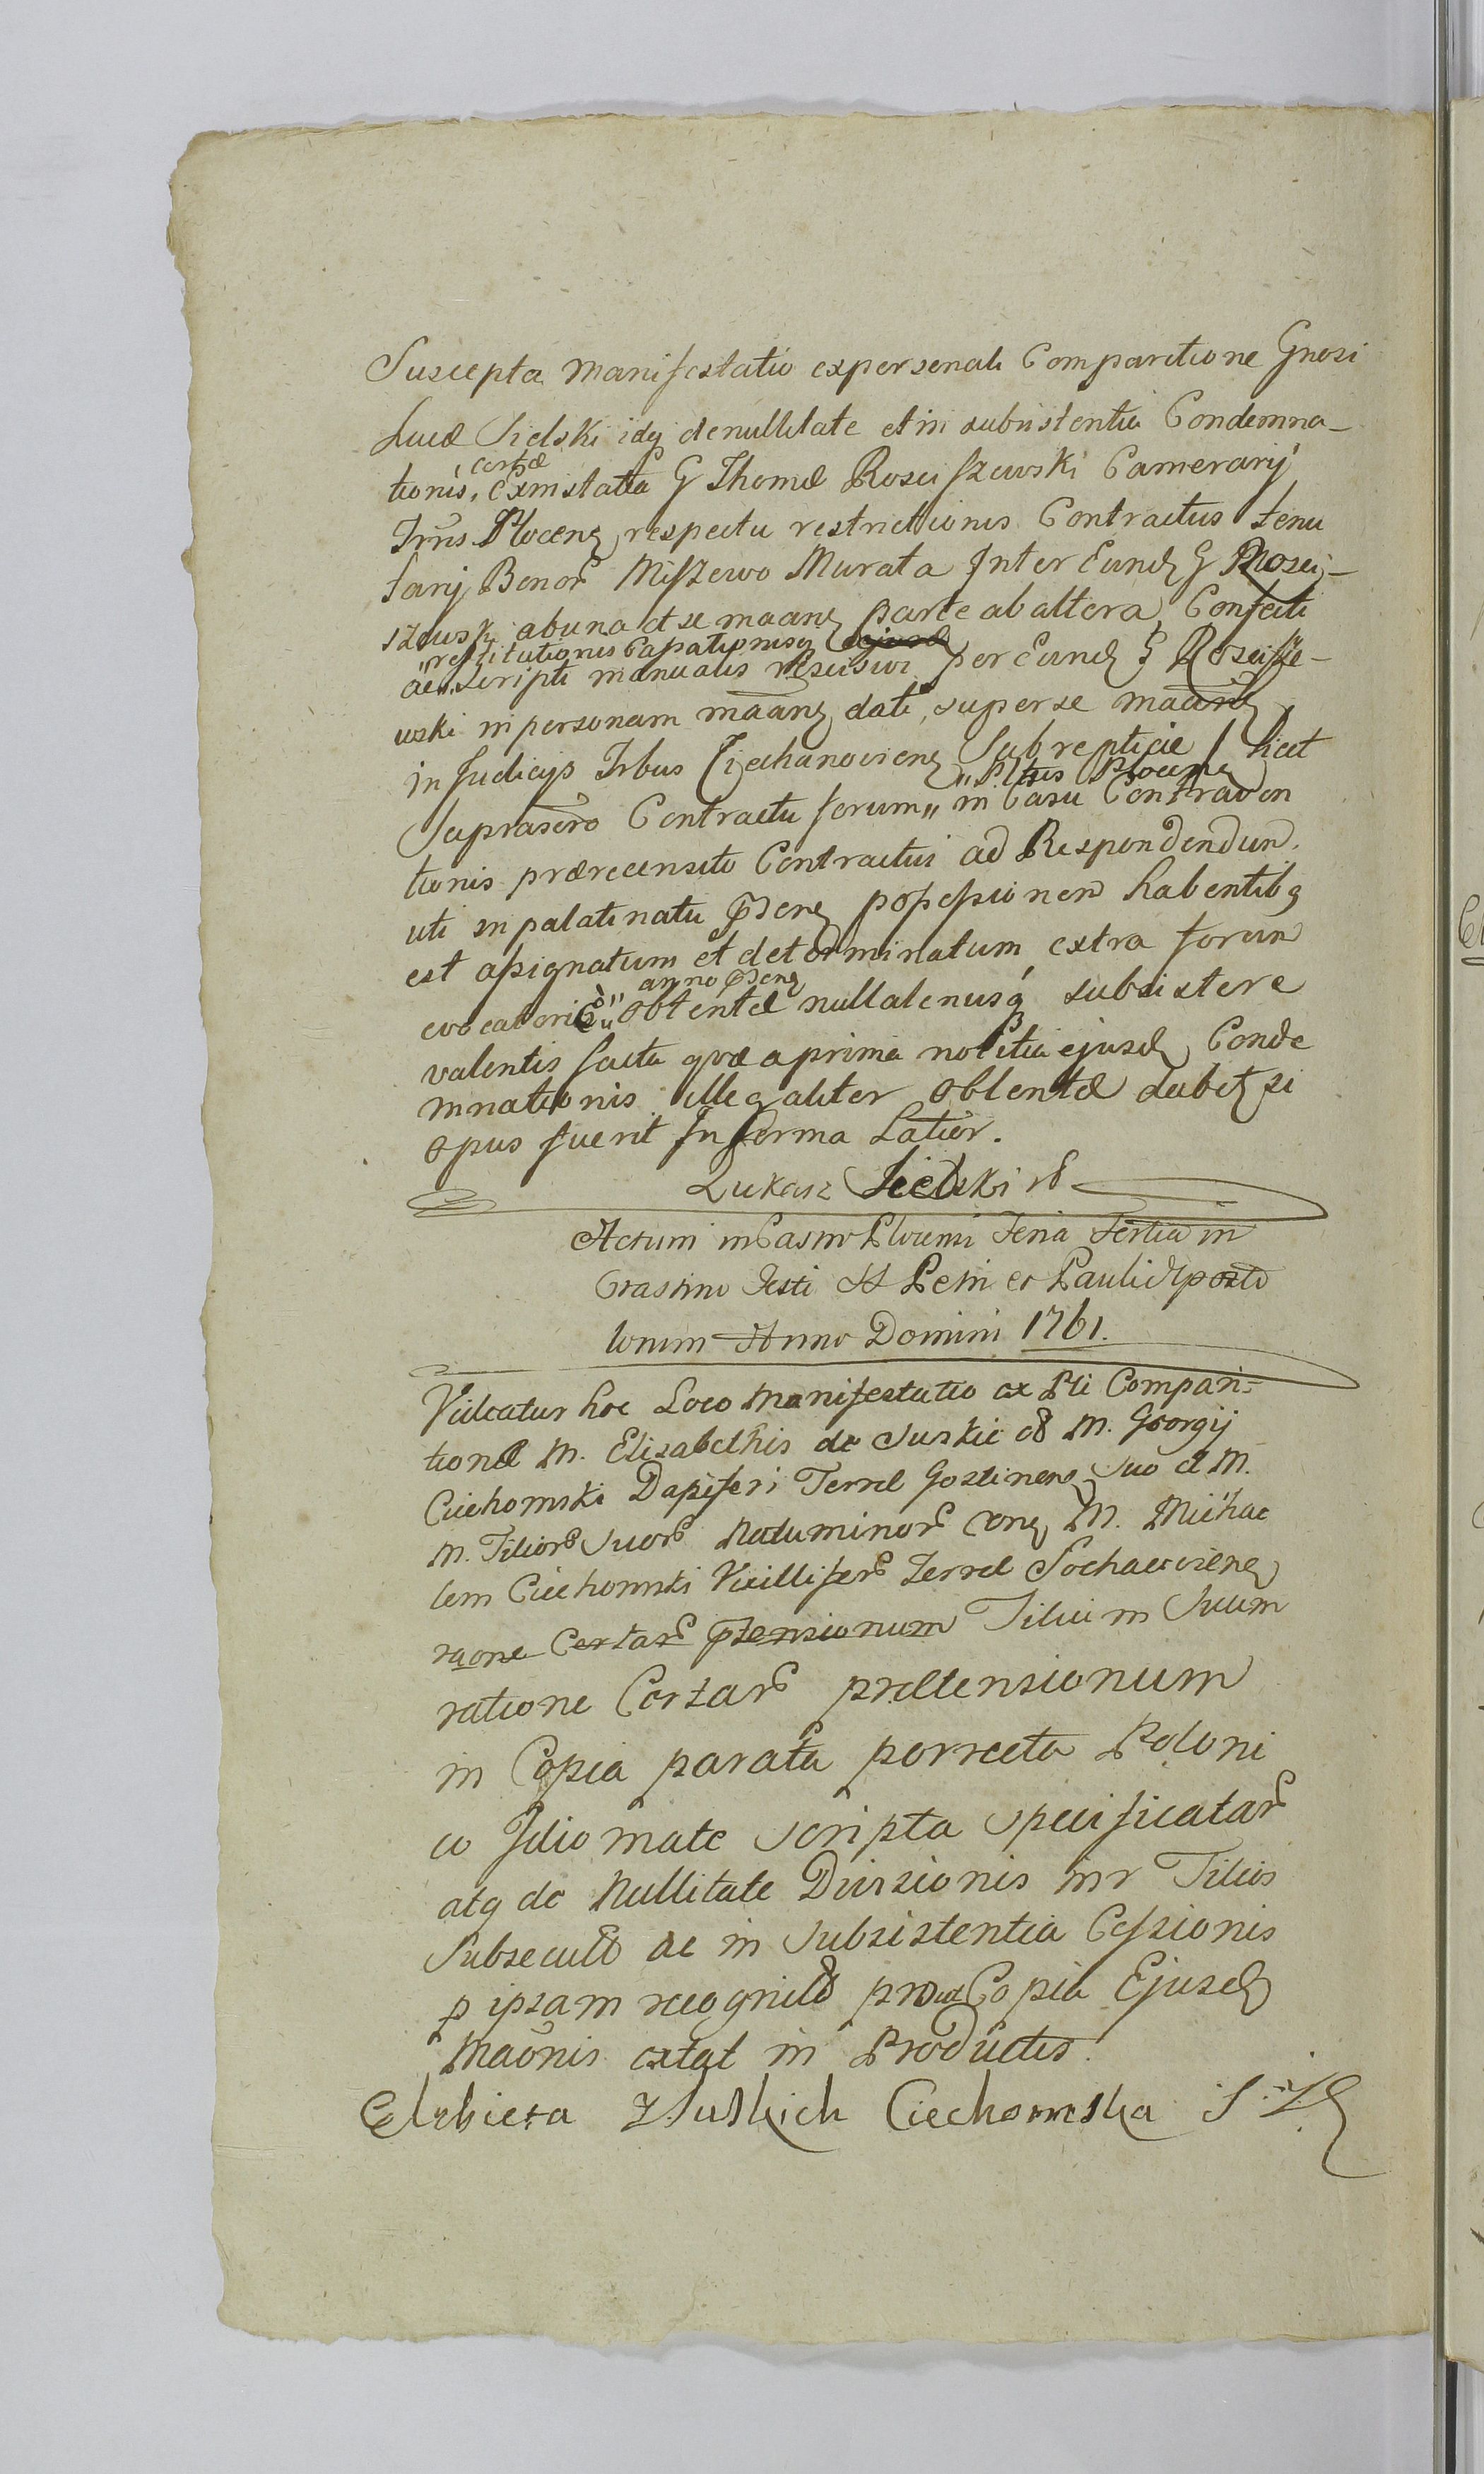 Suscepta Manifestatio ex personali Comparitione Gnosi
Lucæ Sielski idq de nullitate et in subsistentia Condemna-
tionis, certæ Ex instatia G Thomæ Rosciszewski Camerarij
Trrus Plocenq respectu restrictionis Contractus tenu
tarij Bonor Miszewo Murata Inter Eundq G Rosci-
szewski ab una et se maanq parte ab altera, Confecti
ac „restitutionis Cassationisq„ scripti manualis reversivi per Eundq G Roscisze-
wski in personam maanq dati, super se maanq
in Judicijs Trbus Ciechanovienq Subrepticie / licet
Suprascro Contractu forum „Pltus Plocenq„ in Casu Contraven
tionis prærecensito Contractui ad Respondendum
uti in palatinatu eodenq possessionem habentibq
est assignatum et determinatum extra forum
evocatorie „anno eodenq„ obtentæ nullatenusq subsistere
valentis facta quæ a prima notitia ejusdq Conde
mnationis illegaliter obtentæ dabitq si
opus fuerit In forma Latior.
Lukasz Sielski
Actum in Castro Plocensi Feria Tertia in
Crastino Festi SS Petri et Pauli Aposto
lorum Anno Domini 1761.
Videatur hoc Loco Manifestatio ex Pli Compari-
tione M. Elisabethis de Suskie M. Georgij
Ciechomski Dapiferi Terræ Gostinens Suo et M.
M. Filior Suor Natu minor nne M. Michae
lem Ciechomski Vexillifer Terræ Sochaczovienq
raone Certar ptensionum Filium Suum
ratione Certar prætensionum
in Copia parata porrecta Poloni
co Idiomate scripta specificatar
atq de Nullitate Divisionis intr Filios
Subsecutæ ac in Subsistentia Cessionis
p ipsam recognitæ prout Copia Ejusdq
Maonis extat in Productis.
Elzbieta Z Suskich Ciechomska